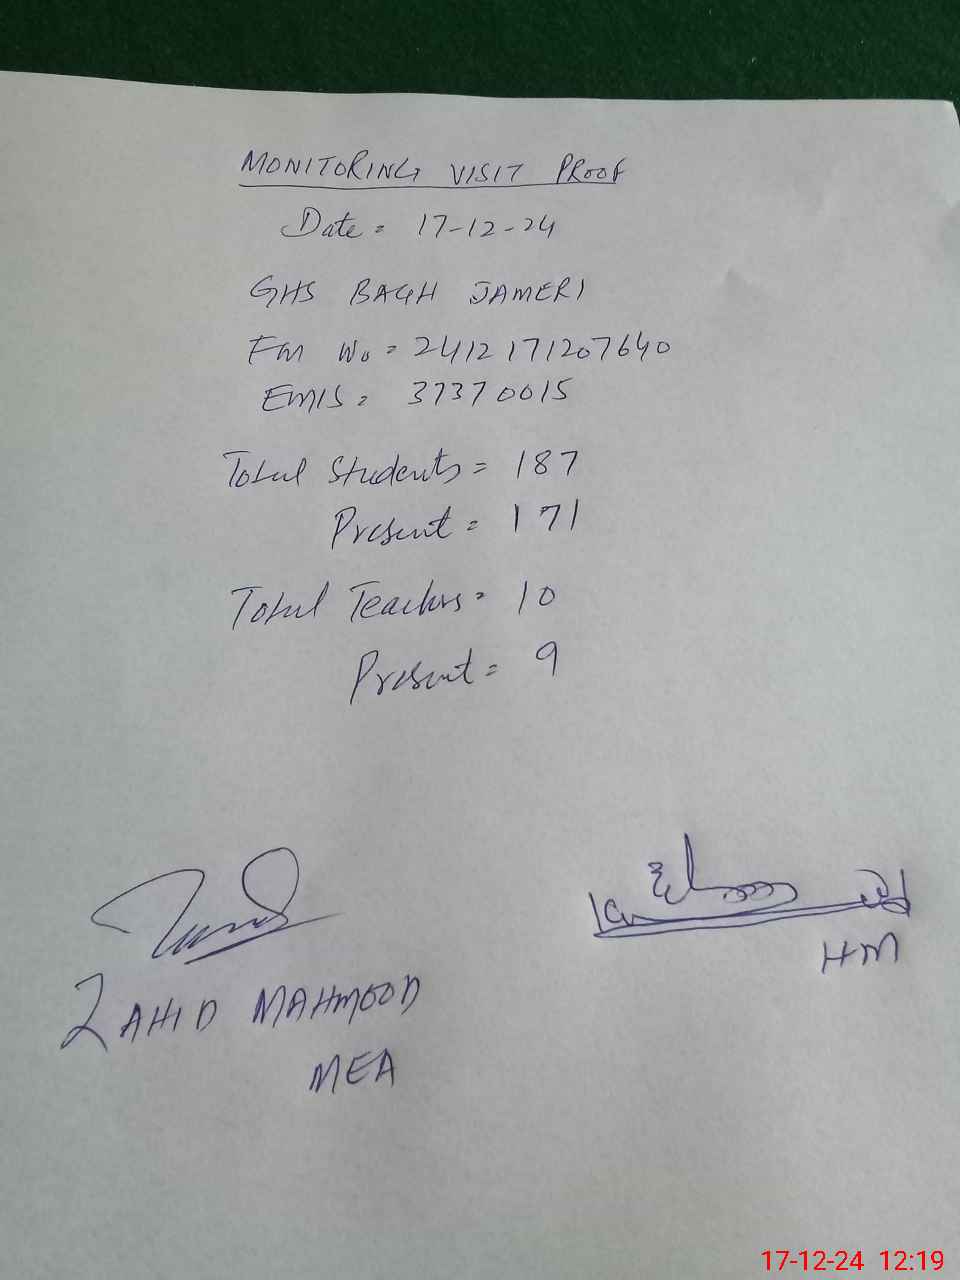 MONITORING VISIT PROOF
Date = 17-12-24
GHS BAGH JAMERI
Fm No = 2412171207640
EMIS = 37370015
Total Students = 187
Present = 171
Total Teachers = 10
Present = 9
HM
ZAHID MAHMOOD
MEA
17-12-24 12:19